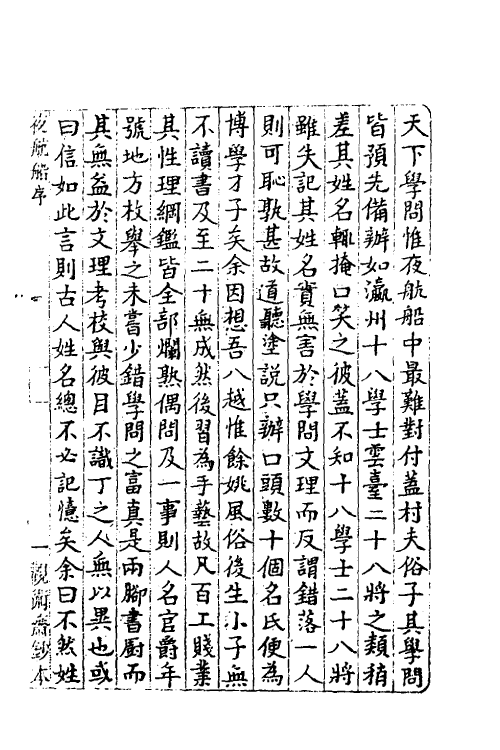 天下學問惟夜航船中最難對付蓋村夫俗子其學問
皆預先備辦如瀛州十八學士雲臺二十八將之類稍
差其姓名輒掩口笑之彼蓋不知十八學士二十八將
雖失記其姓名實無害於學問文理而反謂錯落一人
則可恥孰甚故道聽塗說只辦口頭數十個名氏便為
博學才子矣余因想吾八越惟餘姚風俗後生小子無
不讀書及至二十無成然後習為手藝故凡百工賤業
其性理綱鑑皆全部爛熟偶問及一事則人名官爵年
號地方枚舉之未嘗少錯學問之富真是兩腳書厨而
其無益於文理考校與彼目不識丁之人無以異也或
曰信如此言則古人姓名總不必記憶矣余曰不然姓
夜航船序
一
觀術齋鈔本